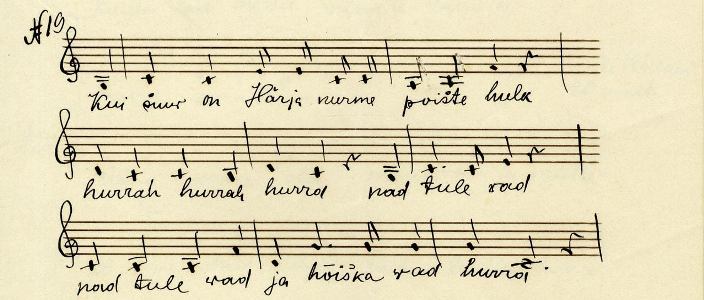 #19
Kui suur on Härja nurme poiste hulk
hurrah hurrah hurra nad tule wad
nad tule wad ja hõiska wad hurra